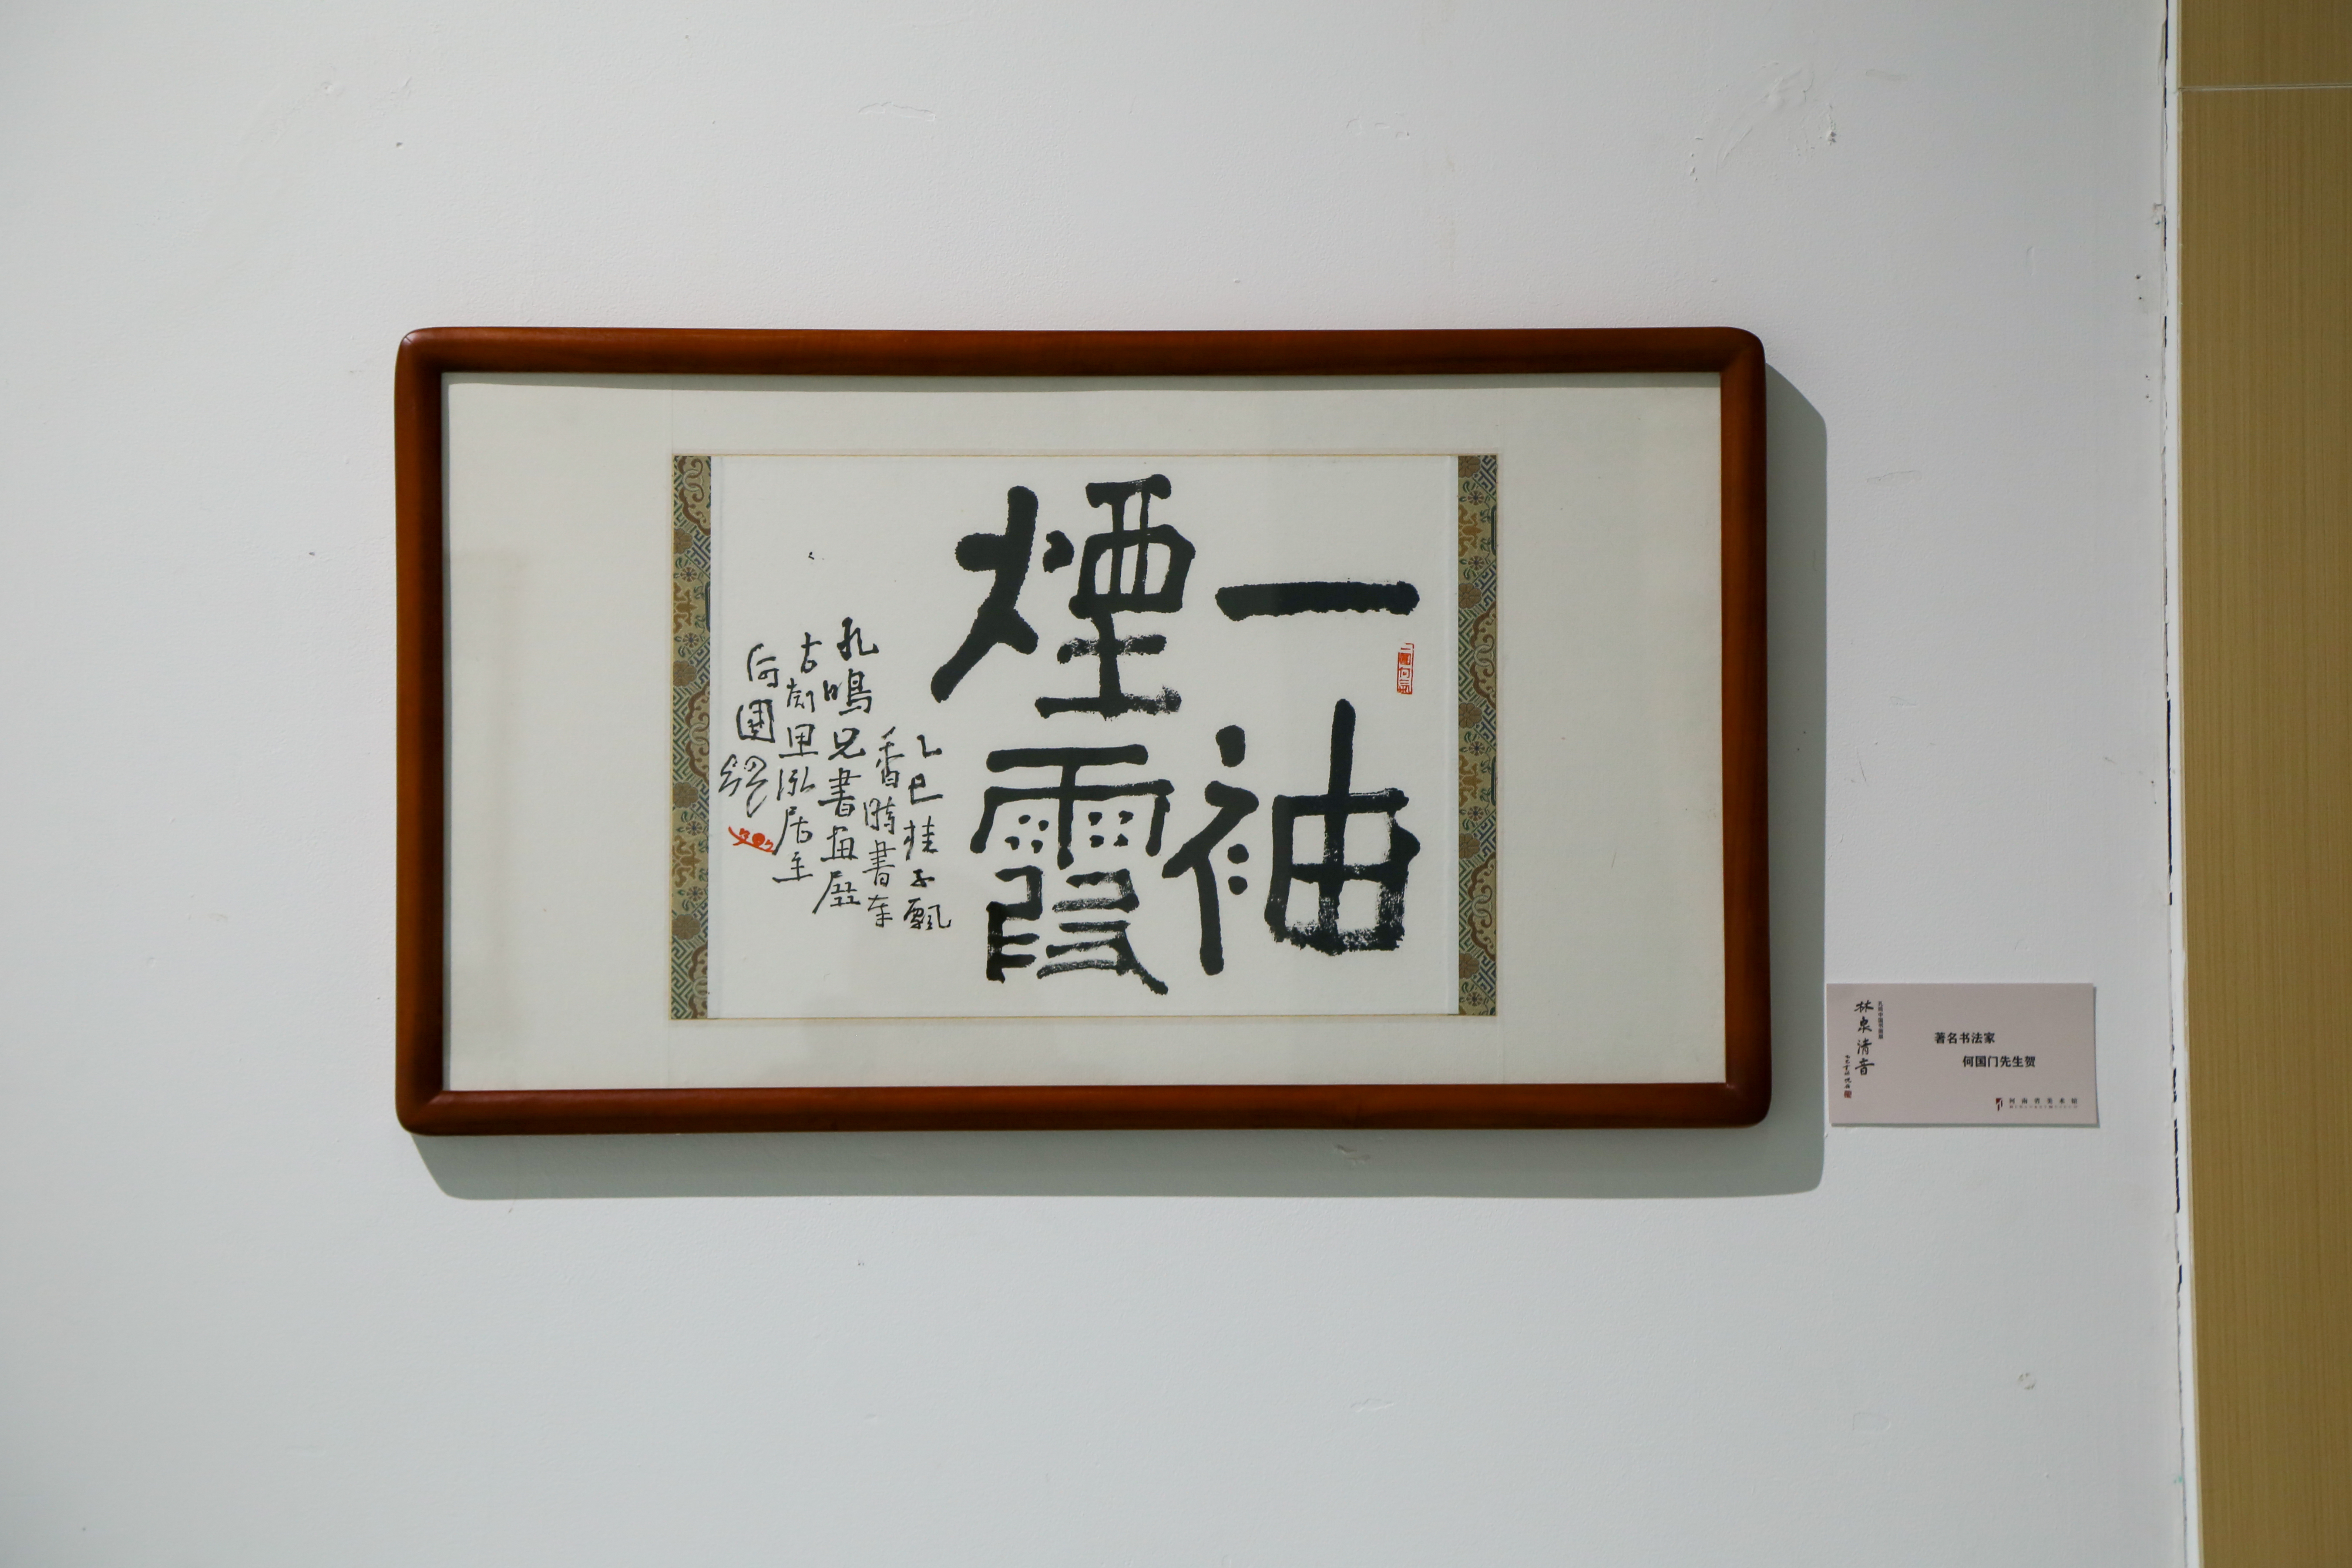 一袖
煙霞
乙巳桂子飄
香時書奉
孔鳴兄書畫展
古
居主
何國
林泉清音
著名书法家
何国门先生贺
河南省美术馆